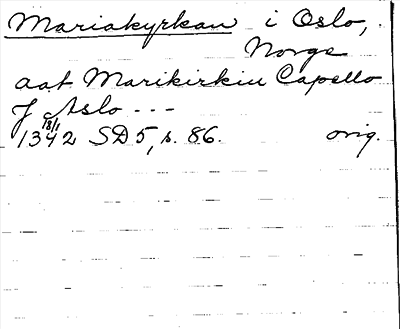 Mariakyrkan i Oslo,
Norge
aat Marikirkiu Capello
J Aslo ---
18/1
1342 SD5, s. 86. orig.